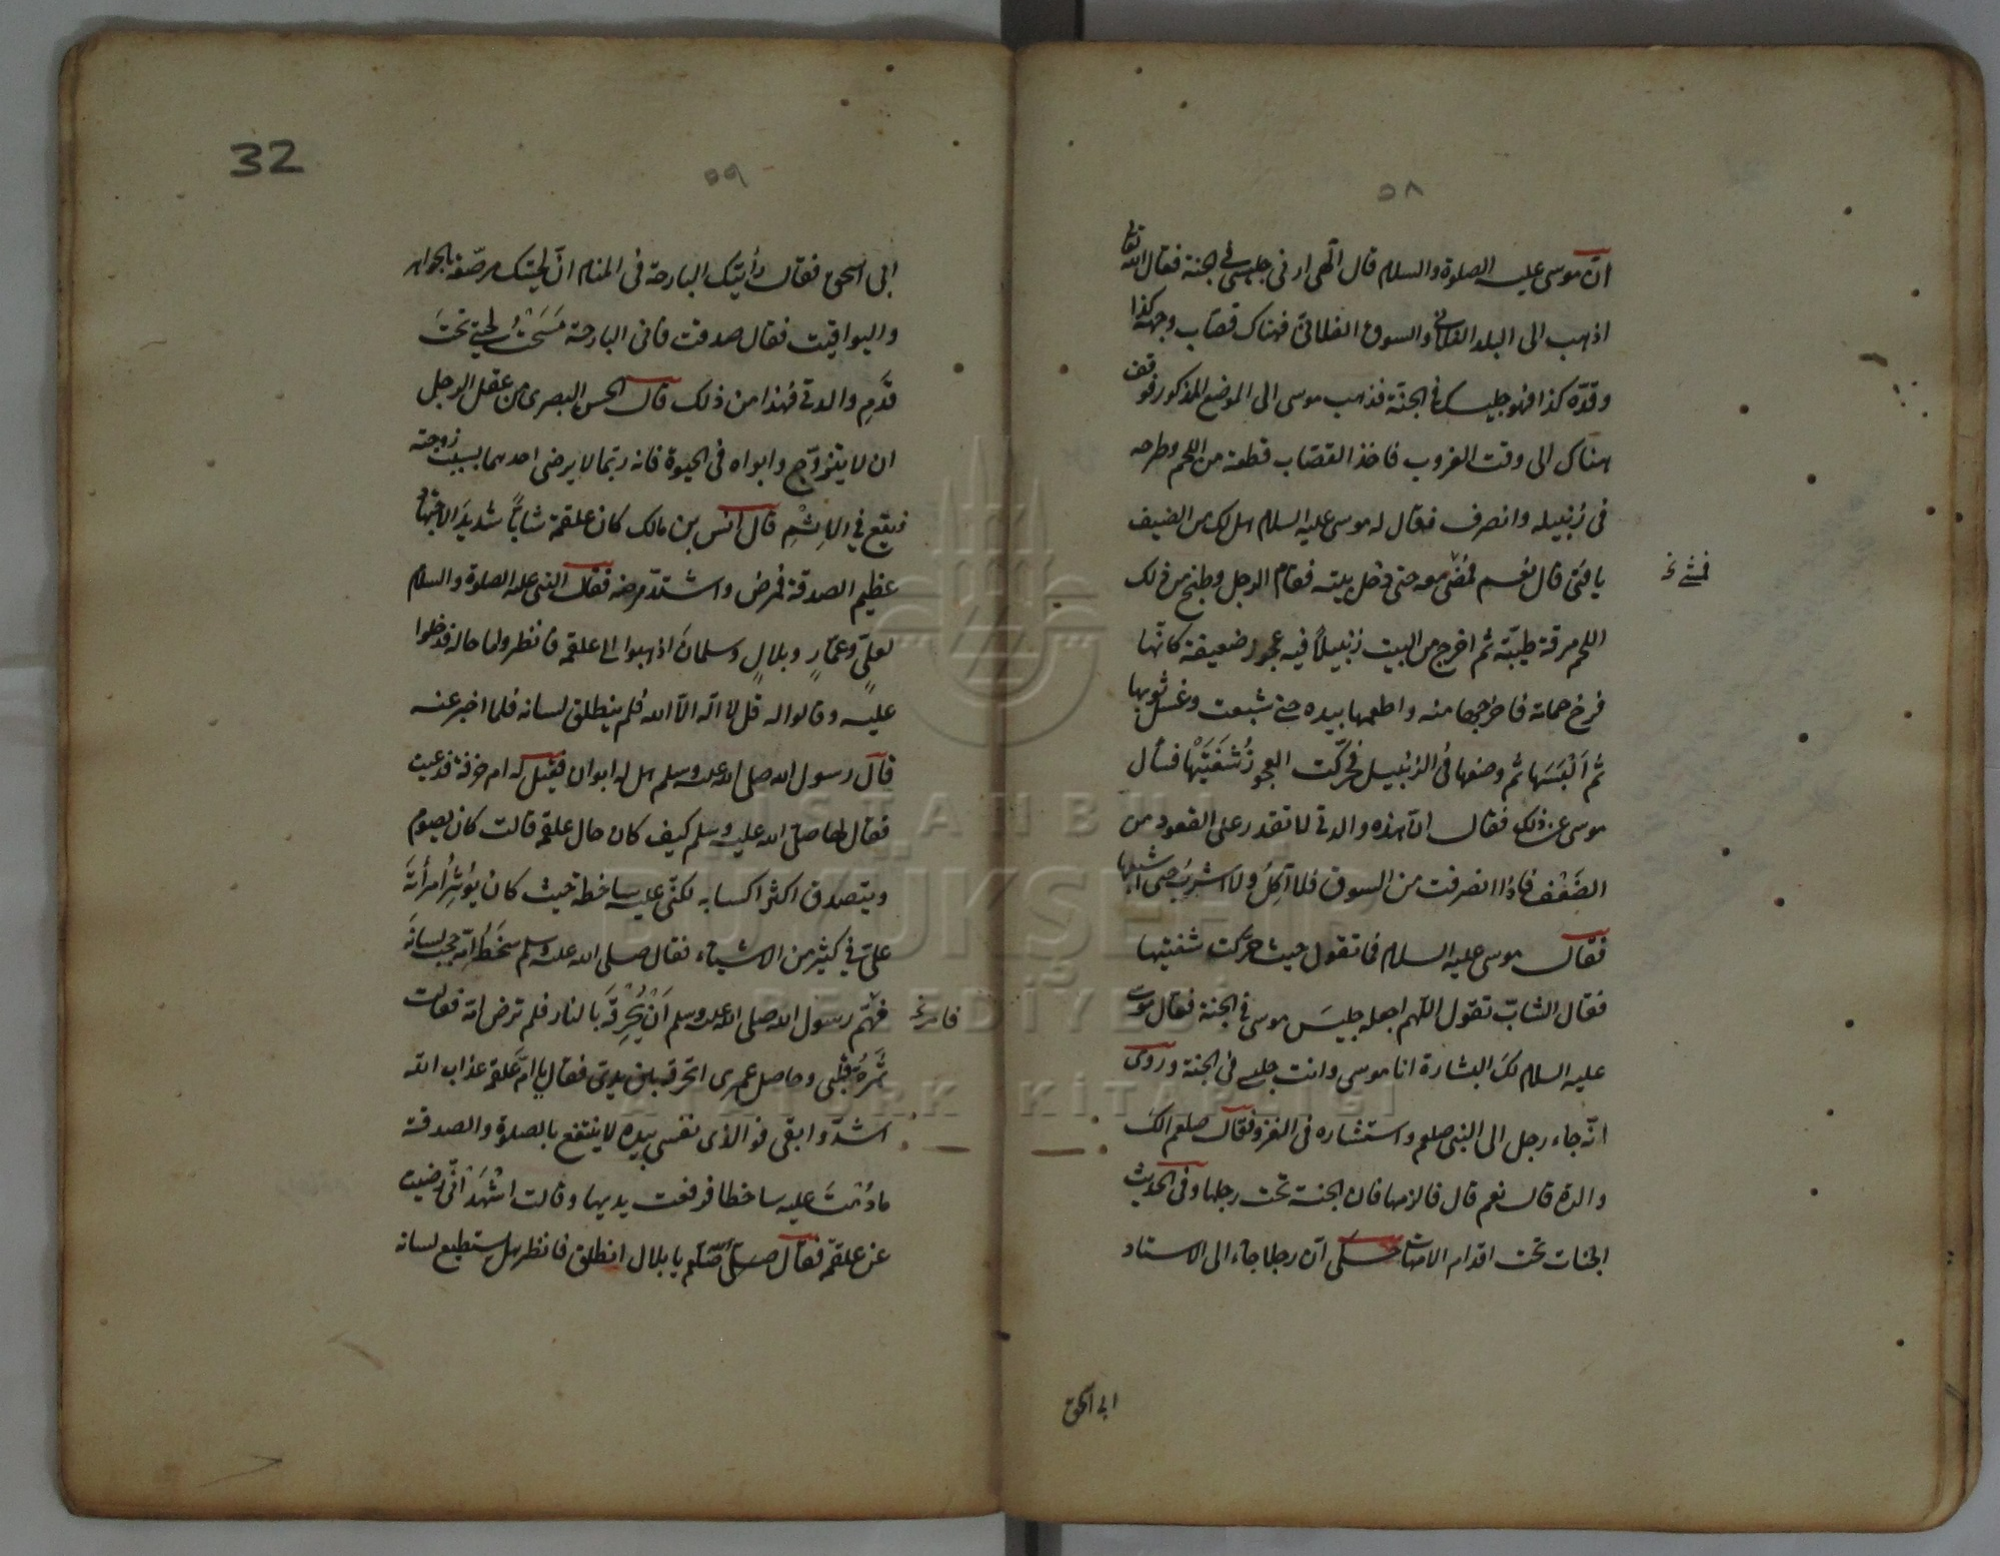 ٥٨
انّ موسى عليه الصلوة والسلام قال الٓهى ارنى جليسى فى الجنة فقال الله تعا
اذهب الى البلد الفلانى والسوق الفلانىّ فهناك قصّاب وجهه كذا
وقدّه كذا فهو جليسك فى الجنة فذهب موسى الى الموضع المذكور فوقف
هناك الى وقت الغروب فاخذ القصّاب قطعة من اللحم وطرحه
فى زنبيله وانصرف فقال له موسى عليه السلام هل لك من الضيف
يا فتى قال نعم فمضى معه حتى دخل بيته فقام الرجل وطبخ من ذلك
فمشى خ
اللحم مرقة طيّبة ثم اخرج من البيت زنبيلاً فيه عجوز ضعيفة كانّها
فرخ حمامة فاخرجها منه واطعمها بيده حتى شبعت وغسل ثوبها
ثم اَلْبَسَها ثم وضعها فى الزنبيل فحرّكت العجوزُ شَفَتَيْها فسأل
موسى عن ذلك فقال انّ هذه والدتى لا تقدر على القعود من
الضَعْف فاذا انصرفت من السوق فلا اٰكلُ ولا اشربُ حتى اشبعها
فقال موسى عليه السلام فما تقول حيث حرّكت شفتيها
فقال الشابّ تقول اللّهم اجعله جليسَ موسى فى الجنة فقال موسى
عليه السلام لكَ البشارة انا موسى وانت جليسى فى الجنة وروى
انّه جاء رجل الى النبى صلعم واستشاره فى الغزو فقال صلعم الك
والدة قال نعم قال فالزمها فان الجنة تحت رجلها وفى الحديث
الجنات تحت اقدام الامّهات حكى انّ رجلا جاء الى الاستاد
ابى اسحق
32
٥٩
ابى اسحق فقال رأيتك البارحة فى المنام انّ لحيتك مرصّعة بالجواهر
واليواقيت فقال صدقت فانى البارحة مَسَحْتُ لحيتى تحتَ
قدَمِ والدتى فهذا من ذلك قال الحسن البصرى من عقل الرجل
ان لا يتزوّج وابواه فى الحيوة فانه ربّما لا يرضى احدهما بسبب زوجته
فيقع فى الاِثْمِ قال انس بن مالك كان علقمة شابّاً شديدَ الاجتهاد
عظيم الصدقة فمرض واشتدّ مرضه فقال النبى عليه الصلوة والسلام
لعلىٍّ وعمّارٍ وبلالٍ وسلمانَ اذهبوا الى علقمة فانظروا ما حاله فدخلوا
عليه وقالوا له قل لا اله الّا الله فلم ينطلق لسانه فلما اخبر عنه
قال رسول الله صلى الله عليه وسلم هل له ابوان فقيل له ام خرفة فدعيت
فقال لها صلى الله عليه وسلم كيف كان حال علقمة قالت كان يصوم
ويتصدق اكثر اكسابه لكنّى عليه ساخطة حيث كان يؤثِرُ امرأتَه
علىّ فى كثير من الاشياء فقال صلى الله عليه وسلم سَخَطُ اُمّه حجب لسانَه
فهّم رسول الله صلى الله عليه وسلم اَنْ يُحْرِقَه بالنار فلم ترض امّه فقالت
فامر خ
ثمَرَةُ قلبى وحاصل عمرى اتحرقه بين يدىّ فقال يا امّ علقمة عذاب الله
اشدّ وابقى فو الذى نفسى بيده لا ينتفع بالصلوة والصدقة
ما دُمْتَ عليه ساخطا فرفعت يديها وقالت اشْهَدْ انّى رضيت
عن علقمة فقال صلعم يا بلال انطلق فانظر هل يستطيع لسانه